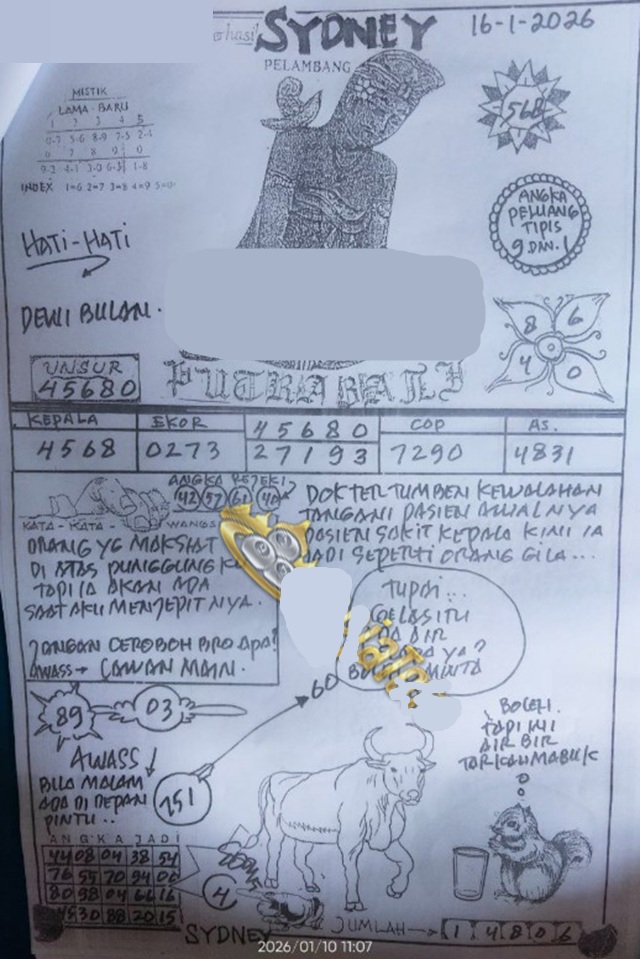 SYDNEY
16-1-2026
PELAMBANG
MISTIK
LAMA - BARU
1 2 3 4 5
0-7 5-6 8-9 7-5 2-1
6 7 8 9 0
INDEX 1=6 2=7 3=8 4=9 5=0
568
ANGKA
PELUANG
TIPIS
9 DAN 1
HATI-HATI
DEWI BULAN.
8 6
4 0
UNSUR
45680
PUTRA BALI
KEPALA
EKOR
45680
COP
AS.
4568
0273
27193
7290
4831
ANGKA REJEKI?
42 57 61 40
KATA - KATA
WANGS
DOKTER TUMBEN KEWALAHAN
TANGANI PASIEN AWALNYA
PASIEN SAKIT KEPALA KINI IA
JADI SEPERTI ORANG GILA...
ORANG YG MAKSIAT
DI ATAS PUNGGUNG KU
TAPI IA AKAN ADA
SAAT AKU MENJEPIT NYA.
JANGAN CEROBOH BRO APA?
AWASS → CAWAN MAIN.
TUPAI...
GELAS ITU
ADA AIR
YA?
MINTA
60
89
03
AWASS
BILA MALAM
ADA DI DEPAN
PINTU..
751
BOLEH.
TAPI INI
AIR BIR
TAR KAU MABUK
ANGKA JADI
44 08 04 38 54
76 55 70 94 00
80 98 04 66 16
45 30 88 20 15
4
JUMLAH → 1 4 8 0 6
SYDNEY
2026/01/10 11:07